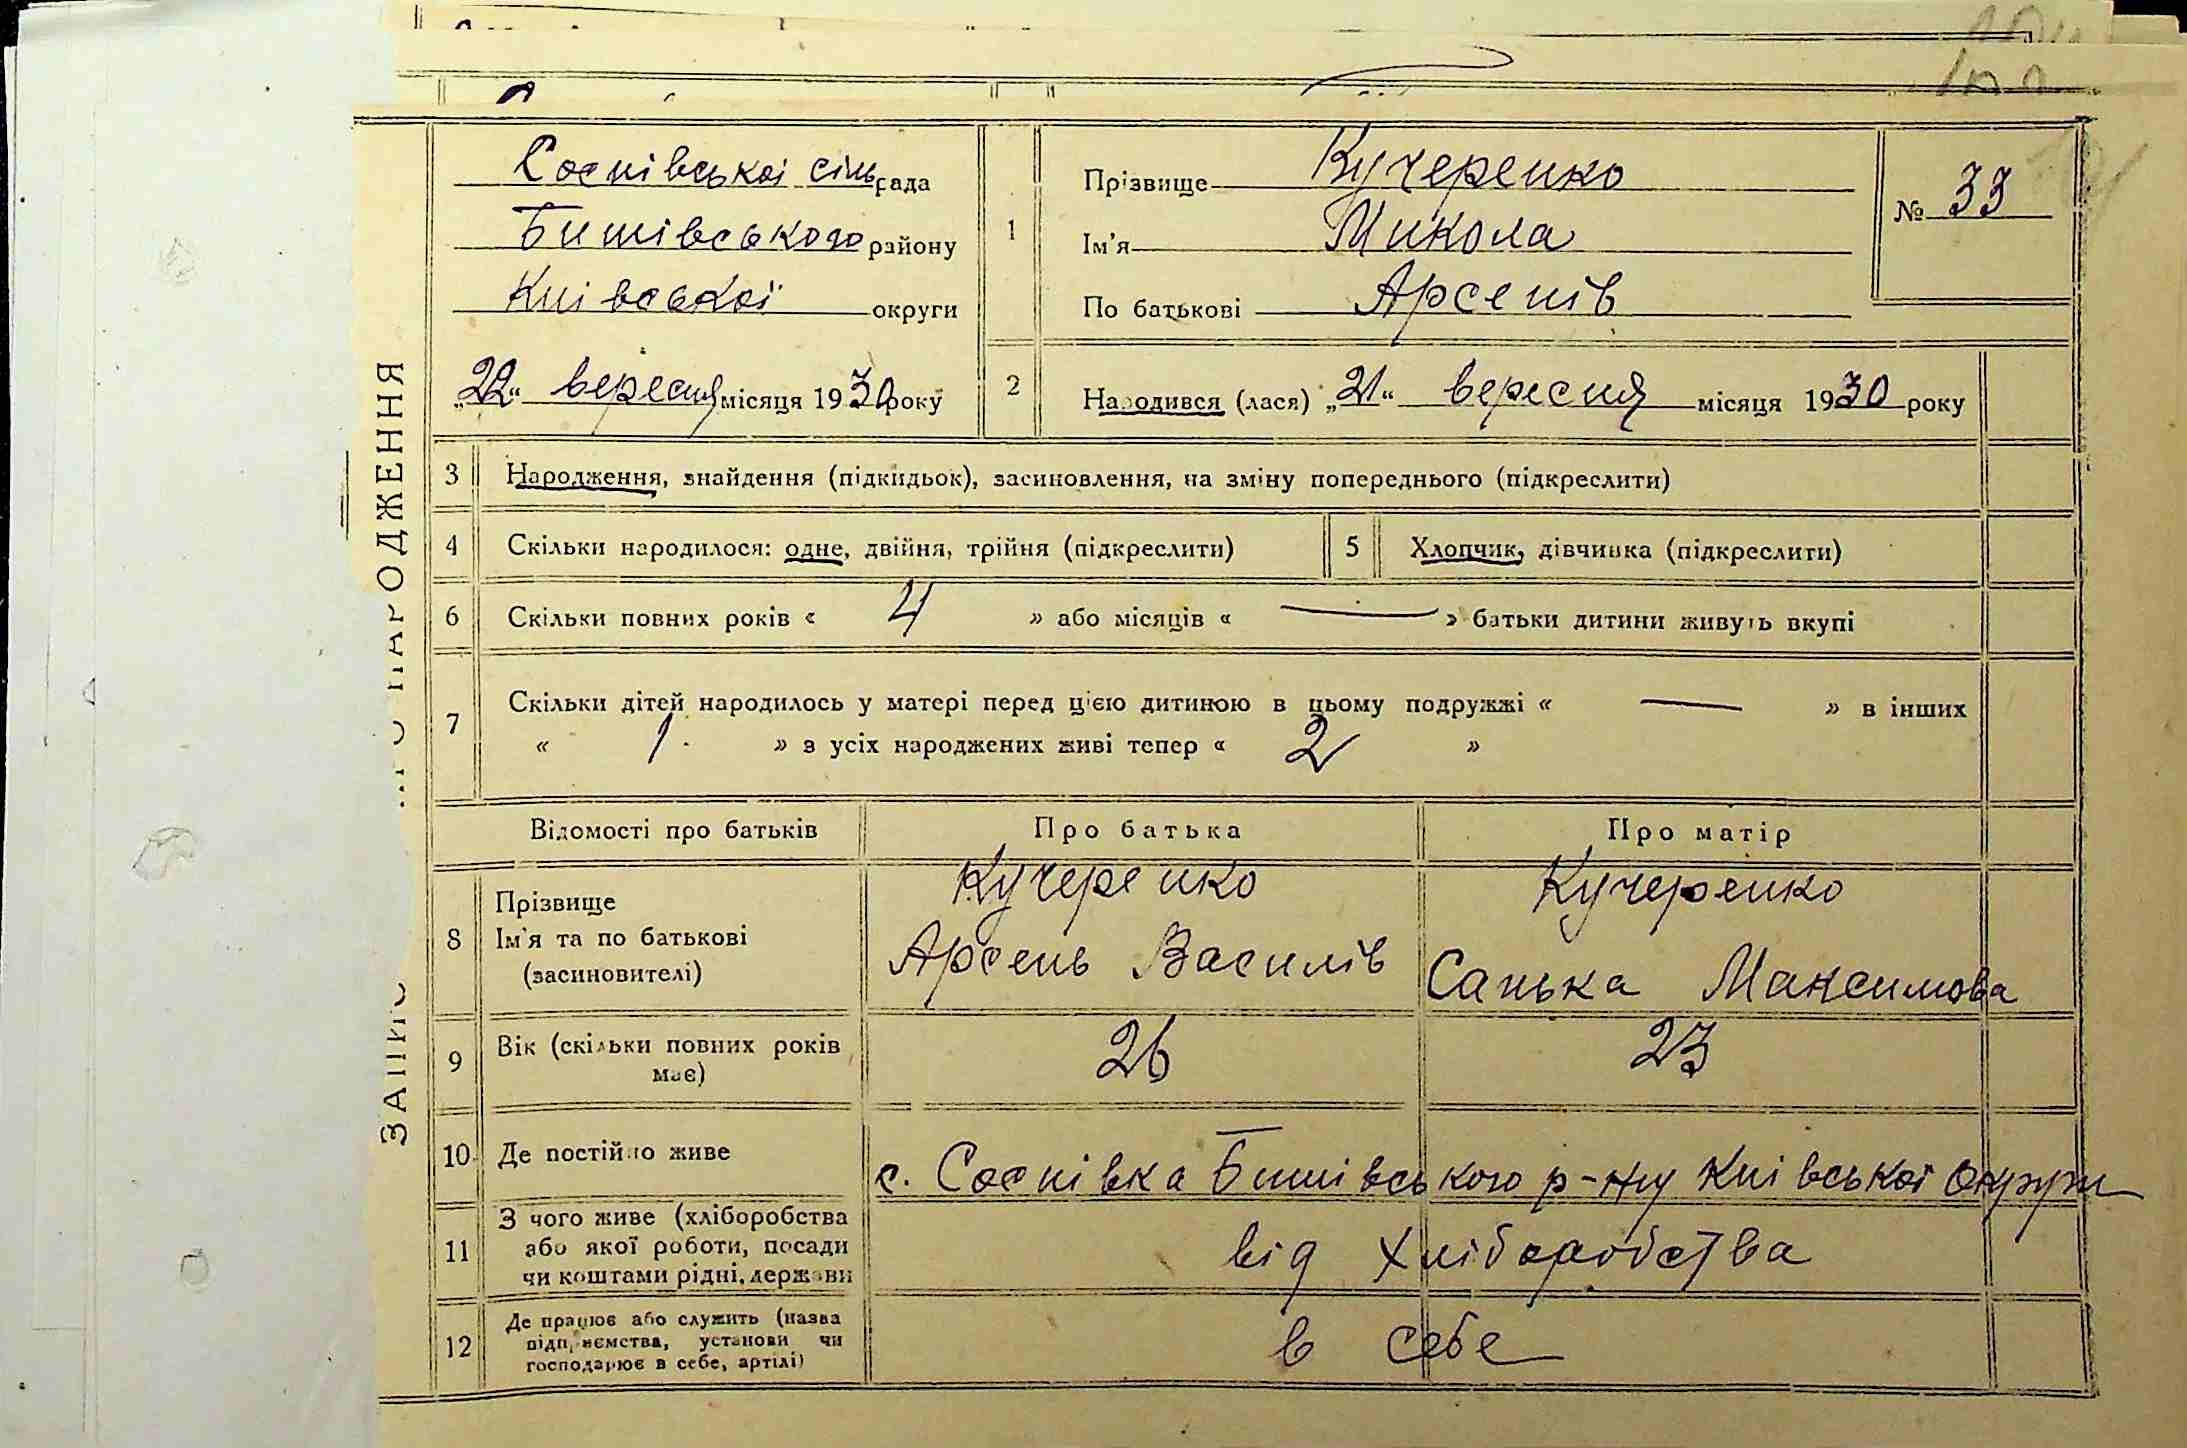 ЗАПИС ПРО НАРОДЖЕННЯ
Соснівської сільрада
Бишівського району
Київської округи
„22“ вересня місяця 1930 року
1
Прізвище Кучеренко
Ім'я Микола
По батькові Арсенів
№ 33
2
Народився (лася) „21“ вересня місяця 1930 року
3 Народження, знайдення (підкидьок), засиновлення, на зміну попереднього (підкреслити)
4 Скільки народилося: одне, двійня, трійня (підкреслити)
5 Хлопчик, дівчинка (підкреслити)
6 Скільки повних років « 4 » або місяців « — » батьки дитини живуть вкупі
7 Скільки дітей народилось у матері перед цією дитиною в цьому подружжі « — » в інших
« 1 » з усіх народжених живі тепер « 2 »
Відомості про батьків Про батька Про матір
8 Прізвище
Ім'я та по батькові
(засиновителі)
Кучеренко
Арсень Василів
Кучеренко
Санька Максимова
9 Вік (скільки повних років
має)
26
23
10 Де постійно живе
с. Соснівка Бишівського р-ну Київської округи
11 З чого живе (хліборобства
або якої роботи, посади
чи коштами рідні, держави
від хліборобства
12 Де працює або служить (назва
підприємства, установи чи
господарює в себе, артілі)
в себе